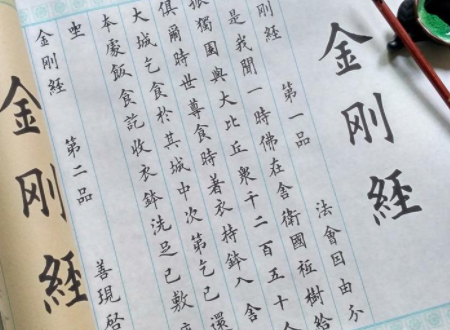 金刚經
刚經 第一品 法會因由分
是我聞一時佛在舍衛國祗樹給
獨園與大比丘衆千二百五十
俱爾時世尊食時着衣持鉢入舍
大城乞食於其城中次第乞已還
本處飯食訖收衣鉢洗足已敷
坐
金刚經 第二品 善現啓
金刚經